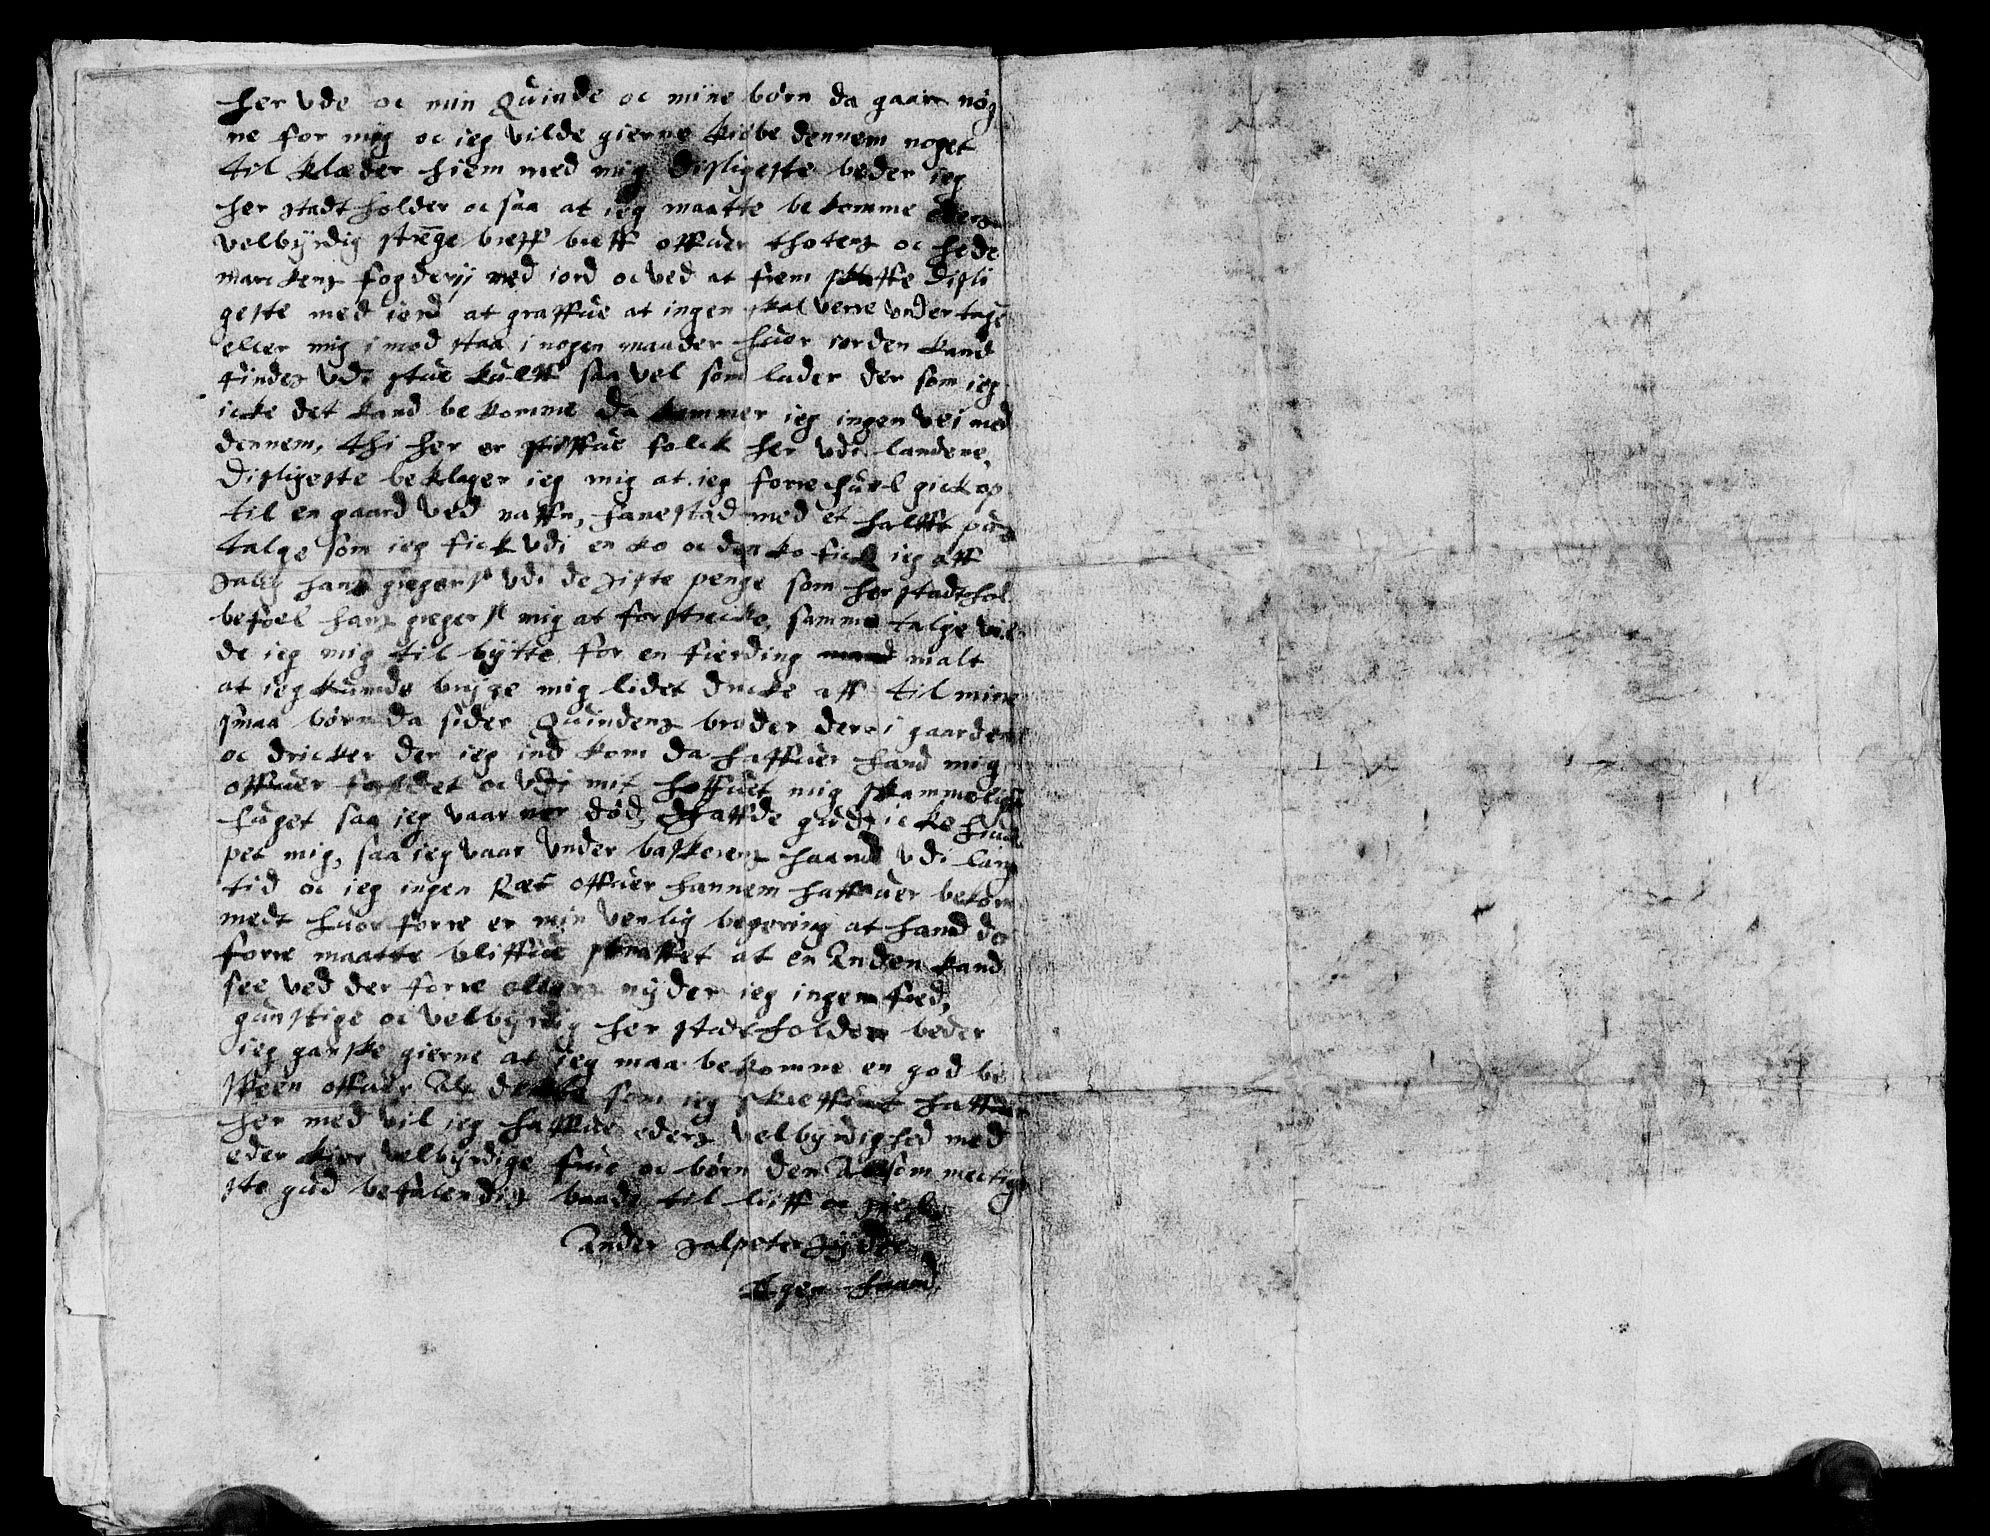 her vde oc min Quinde oc mine børn da gaar nøg
ne for mig oc ieg vilde gierne kiøbe dennem noget
til klæder hiem med mig disligeste beder ieg
her stadtholder oc saa at ieg maatte bekomme eders
velbyrdig strenge breff offuer thotens oc hede
marckens fogderij med iord oc ved at frem skaffe disli
geste med iord at graffue at ingen skal verre vnder tage
eller mig i mod staa i nogen maader huor iorden kand
findes vdi stue saa vel som lader der som ieg
icke det kand bekomme da kommer ieg ingen vei med
dennem, thi her er stiffue folck her vdi landene,
Disligeste beklager ieg mig at ieg forre Juel gick op
til en gaard ved naffn, fanestad med et halfft pund
talge som ieg fick vdi en ko oc den ko fick ieg aff
hans gregers vdi de siste penge som her stadthol
befoel hans gregers mig at forstrecke, samme talge vil
de ieg mig til bytte for en fierding malt
at ieg kunde brygge mig lidet dricke aff til mine
smaa børn da sider Quindens broder der i gaarden
oc dricker der ieg ind kom da haffuer hand mig
offuer faldet oc vdi mit hoffuet mig skammelig
huget saa ieg vaar ner død, haffde gud icke hiul
pet mig, saa ieg vaar vnder baskerens haand vdi lang
tid oc ieg ingen Ræt offuer hannem haffuer bekom
medt huor forre er min venlig begering at hand der
forre maatte bliffue straffet at en Anden kand
see ved der forre ellers nyder ieg ingen fred,
gunstige oc velbyrdig her stadtholder beder
ieg ganske gierne at ieg maa bekomme en god be
skeen offuer Alt dette som ieg skreffuet haffuer
her med vil ieg haffue eders velbyrdighed med
eder kier velbyrdige frue oc børn den Alsom mectig
ste gud befalendis baade til liff oc siel
Anders salpeter syder
Egen haand